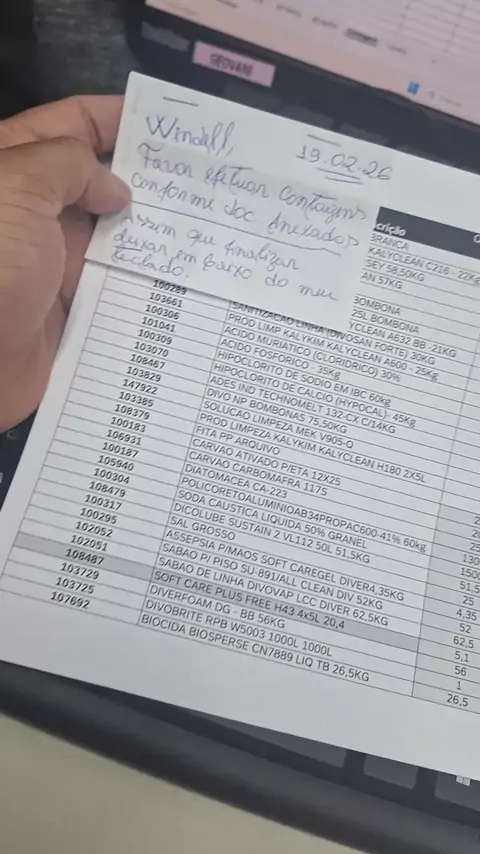 GEOVANI
Windell,
19.02.26
Favor efetuar contagens
conforme doc anexados
Assim que finalizar
deixar em baixo do meu
teclado.
crição
BRANCA
KALYCLEAN C216 - 22Kg
SEY 58,50KG
AN 57KG
BOMBONA
25L BOMBONA
YCLEAN A632 BB -21KG
100289
SANITIZACAO LINHA (DIVOSAN FORTE) 30KG
103661
PROD LIMP KALYKIM KALYCLEAN A600 - 25Kg
100306
ACIDO MURIATICO (CLORIDRICO) 30%
101041
ACIDO FOSFORICO - 35Kg
100309
HIPOCLORITO DE SODIO EM IBC 60kg
103070
HIPOCLORITO DE CALCIO (HYPOCAL)- 45Kg
108467
ADES IND TECHNOMELT 132-CX C/14KG
103829
DIVO NP BOMBONAS 75.50KG
147922
SOLUCAO LIMPEZA MEK V905-Q
103385
PROD LIMPEZA KALYKIM KALYCLEAN H180 2X5L
108379
FITA PP ARQUIVO
100183
CARVAO ATIVADO P/ETA 12X25
106931
CARVAO CARBOMAFRA 117S
100187
DIATOMACEA CA-223
105940
POLICORETOALUMINIOAB34PROPAC600-41% 60kg
100304
SODA CAUSTICA LIQUIDA 50% GRANEL
130
108479
DICOLUBE SUSTAIN 2 VL112 50L 51,5KG
1500
100317
SAL GROSSO
51,5
100295
ASSEPSIA P/MAOS SOFT CAREGEL DIVER4,35KG
25
102052
SABAO P/ PISO SU-891/ALL CLEAN DIV 52KG
4,35
102051
SABAO DE LINHA DIVOVAP LCC DIVER 62,5KG
52
108487
SOFT CARE PLUS FREE H43 4x5L 20,4
62,5
103729
DIVERFOAM DG - BB 56KG
5,1
103725
DIVOBRITE RPB W5003 1000L 1000L
56
107692
BIOCIDA BIOSPERSE CN7889 LIQ TB 26,5KG
1
26,5